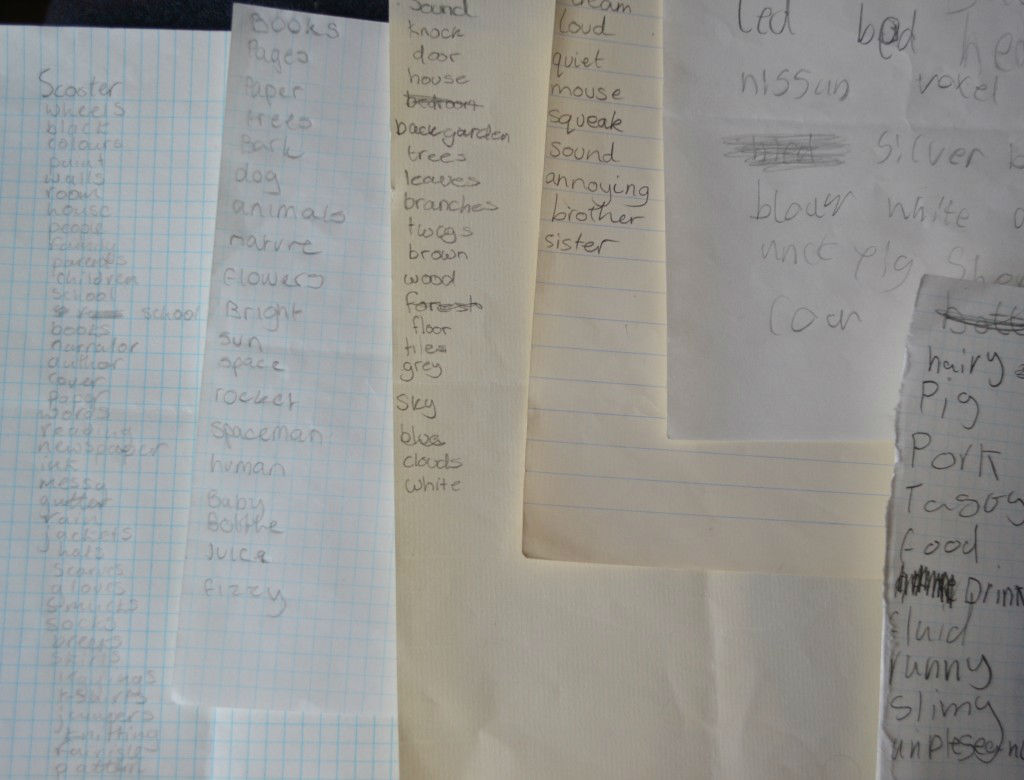 Scooter
wheels
black
colours
paint
walls
room
house
people
family
parents
children
school
school
books
narrator
author
cover
paper
words
reading
newspaper
ink
messy
gutter
rain
jackets
hats
scarves
gloves
socks
skirts
jumpers
knitting
BOOKS
Pages
Paper
trees
Bark
dog
animals
nature
flowers
Bright
sun
space
rocket
spaceman
human
Baby
Bottle
Juice
fizzy
sound
knock
door
house
bedroom
backgarden
trees
leaves
branches
twigs
brown
wood
forest
floor
tiles
grey
sky
blue
clouds
white
loud
quiet
mouse
squeak
sound
annoying
brother
sister
led bad
nissan voxel
silver
white
pig
hairy
Pig
Pork
food
fluid
runny
slimy